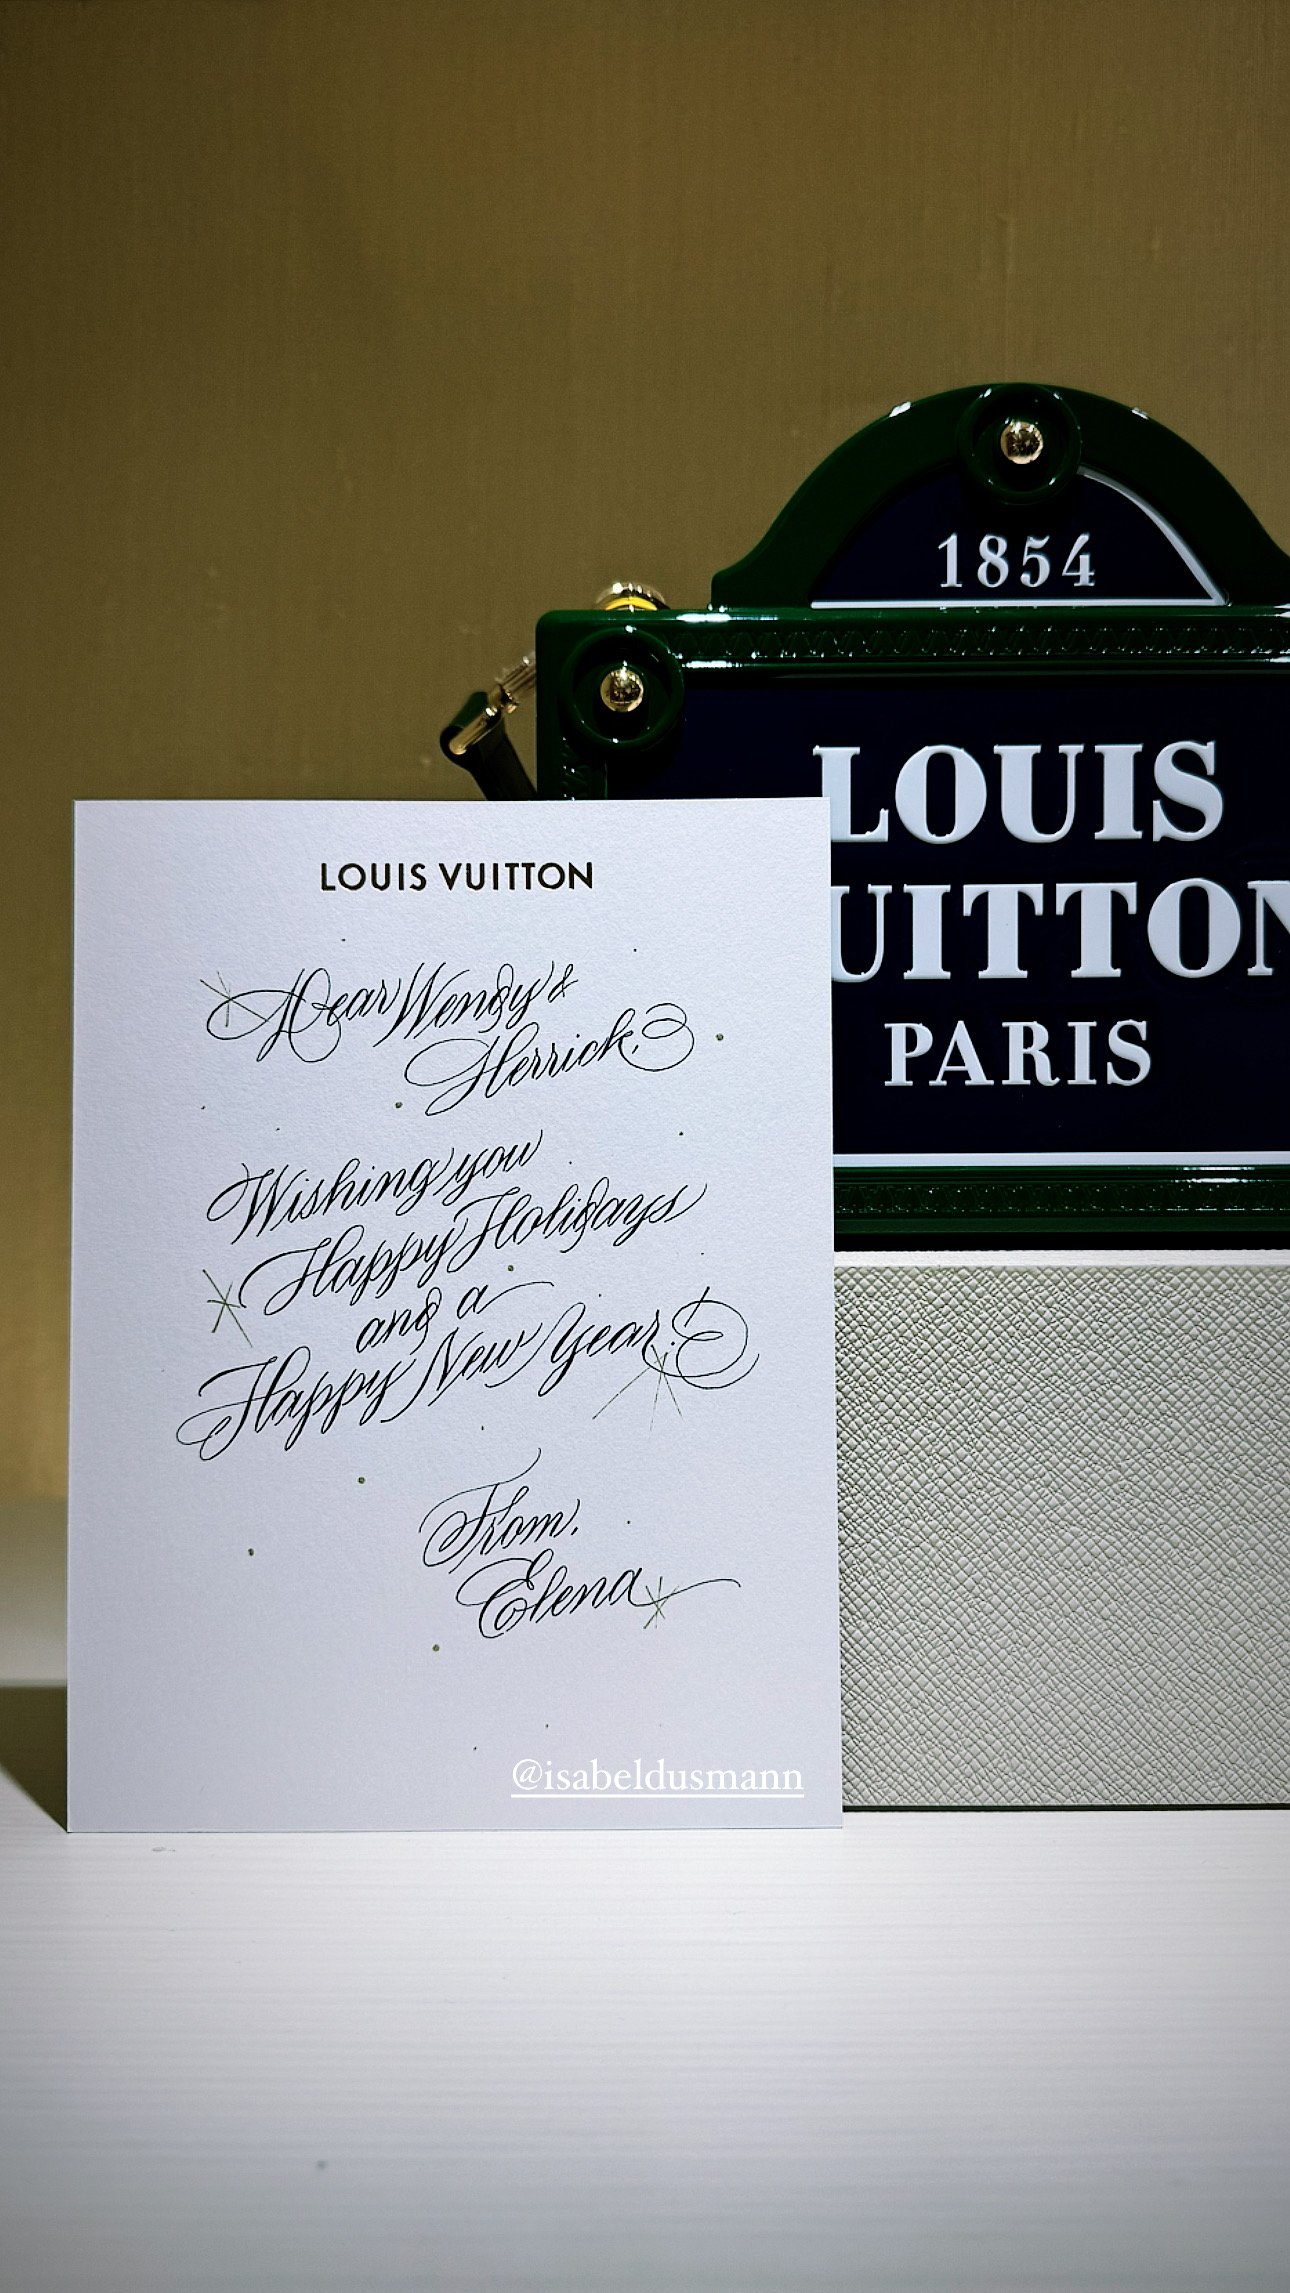 1854
LOUIS
UITTON
PARIS
LOUIS VUITTON
Dear Wendy &
Herrick,
Wishing you
Happy Holidays
and a
Happy New Year!
From,
Elena
@isabeldusmann